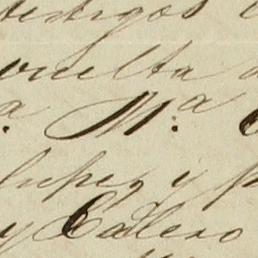 testigos
vuelta
a. M.a
Lopez y
y Calero